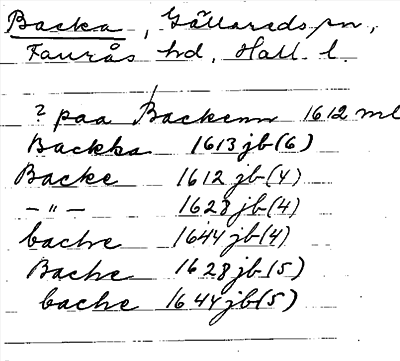 Backa, Gällareds sn,
Faurås hd, Hall. l.
? paa Backenn 1612 ml
Backka 1613 jb (6)
Backe 1612 jb (4)
— " — 1628 jb (4)
backe 1644 jb (4)
Backe 1628 jb (5)
backe 1644 jb (5)